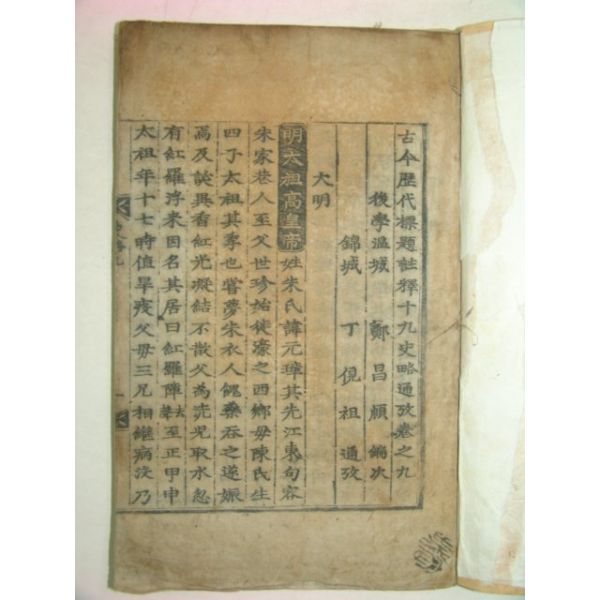 古今歷代標題註釋十九史略通攷卷之九
後學溫城 鄭昌順 編次
錦城 丁俔祖 通攷
大明
明太祖高皇帝姓朱氏諱元璋其先江東句容
朱家巷人至父世珍始徙濠之西鄉毋陳氏生
四子太祖其季也甞夢朱衣人餽藥吞之遂娠
焉及誕異香紅光凝結不散父爲浣兒取水忽
有紅羅浮來因名其居曰紅羅障至正甲申
太祖年十七時值旱疫父毋三兄相繼病沒乃